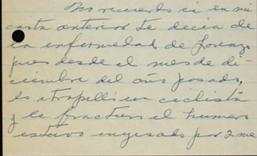 No recuerdo si en mi
carta anterior te decia de
la enfermedad de Lorenzo,
pues desde el mes de di-
ciembre del año pasado,
lo atropelló un ciclista
y le fracturó el humero
estuvo ingresado por 2 me